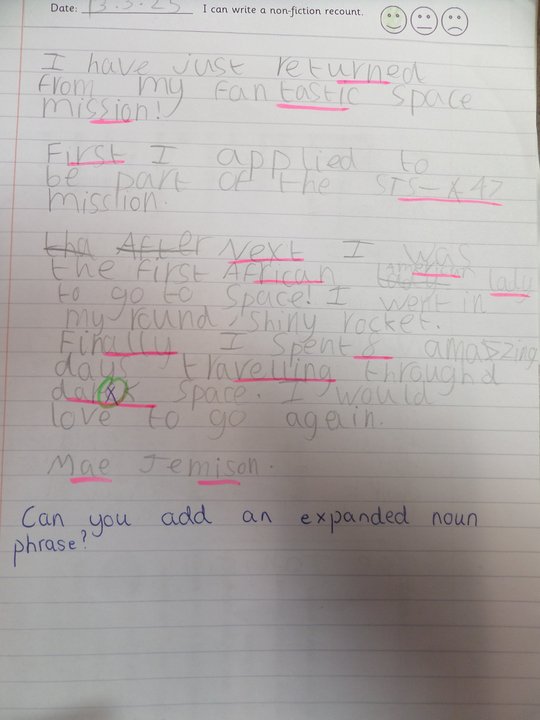 Date: 13.3.25 I can write a non-fiction recount.
I have just returned
from my fantastic space
mission!
First I applied to
be part of the STS-K47
mission.
tha After Next I was
the first African laly
to go to space! I went in
my round, shiny rocket.
Finally I spent 8 amazing
days travelling throughd
dark space. I would
love to go again.
Mae Jemison.
Can you add an expanded noun
phrase?